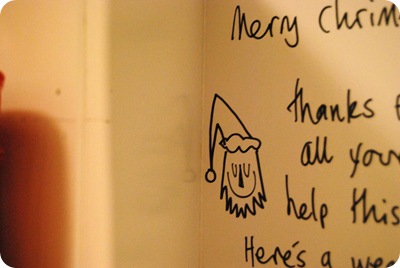 Merry Chris
thanks
all your
help this
Here's a wee